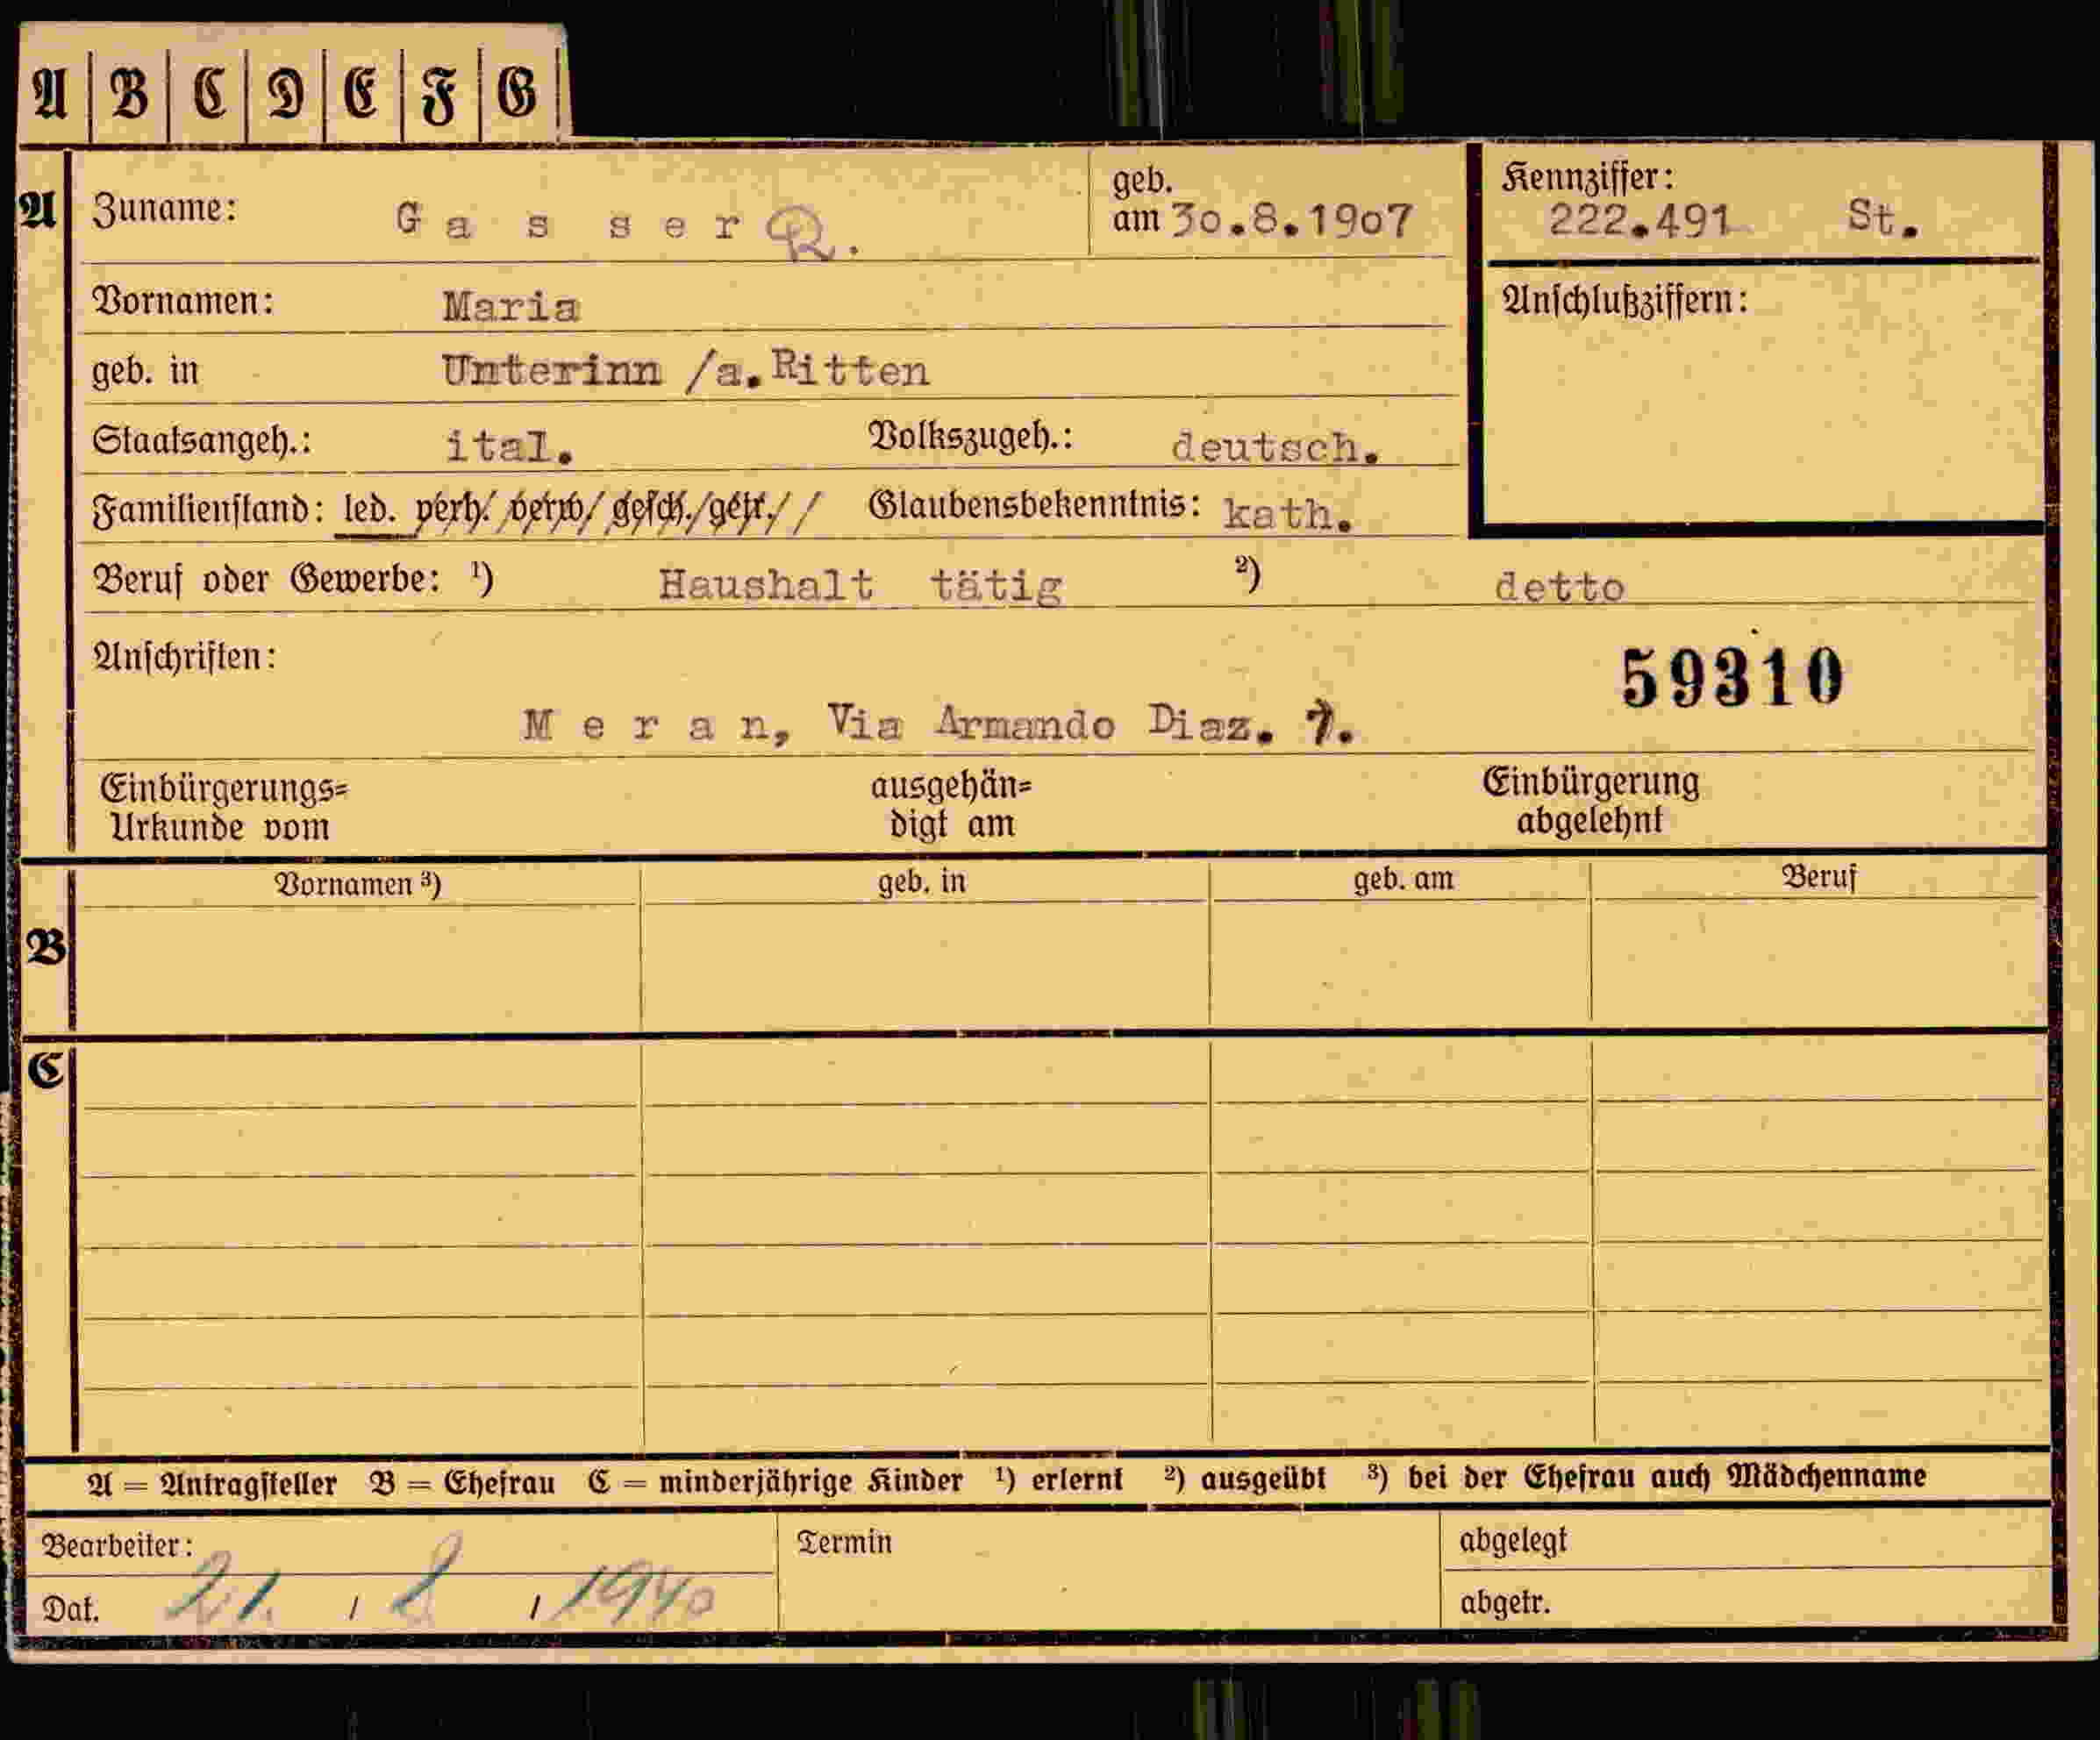 A B C D E F G
A Zuname: G a s s e r R. geb. am 30.8.1907 Kennziffer: 222.491 St.
Vornamen: Maria Anschlußziffern:
geb. in Unterinn /a.Ritten
Staatsangeh.: ital. Volkszugeh.: deutsch.
Familienstand: led. verh. verw. gesch. getr. Glaubensbekenntnis: kath.
Beruf oder Gewerbe: ¹) Haushalt tätig ²) detto
Anschriften: 59310
M e r a n, Via Armando Diaz. 7.
Einbürgerungs= ausgehän= Einbürgerung
Urkunde vom digt am abgelehnt
Vornamen ³) geb. in geb. am Beruf
B
C
A = Antragsteller B = Ehefrau C = minderjährige Kinder ¹) erlernt ²) ausgeübt ³) bei der Ehefrau auch Mädchenname
Bearbeiter: Termin abgelegt
Dat. 21. / 8 / 1940 abgetr.